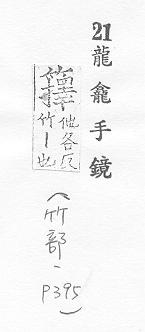 21龍龕手鏡
籜他各反
竹丨也
(竹部-P395)